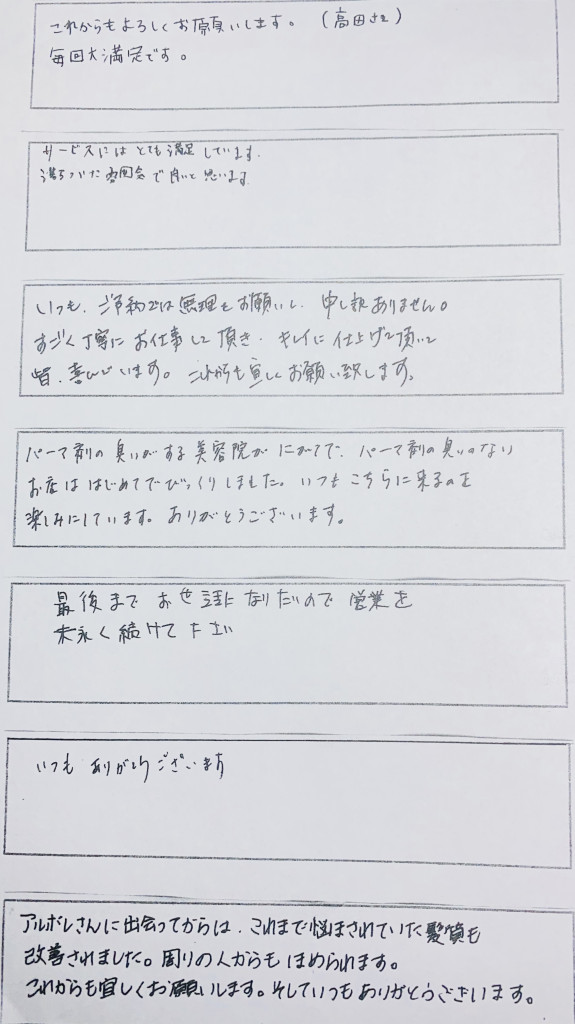 これからもよろしくお願いします。（高田さん）
毎回大満足です。
サービスにはとても満足しています。
落ちついた雰囲気で良いと思います
いつも、ご予約では無理をお願いし、申し訳ありません。
すごく丁寧にお仕事して頂き、キレイに仕上げて頂いて
皆、喜んでいます。これからも宜しくお願い致します。
パーマ剤の臭いがする美容院がにがてで、パーマ剤の臭いのない
お店ははじめてでびっくりしました。いつもこちらに来るのを
楽しみにしています。ありがとうございます。
最後までお世話になりたいので営業を
末永く続けて下さい
いつもありがとうございます
アルボレさんに出会ってからは、これまで悩まされていた髪質も
改善されました。周りの人からもほめられます。
これからも宜しくお願いします。そしていつもありがとうございます。